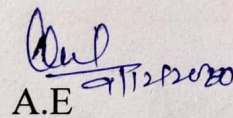 9/12/2020
A.E